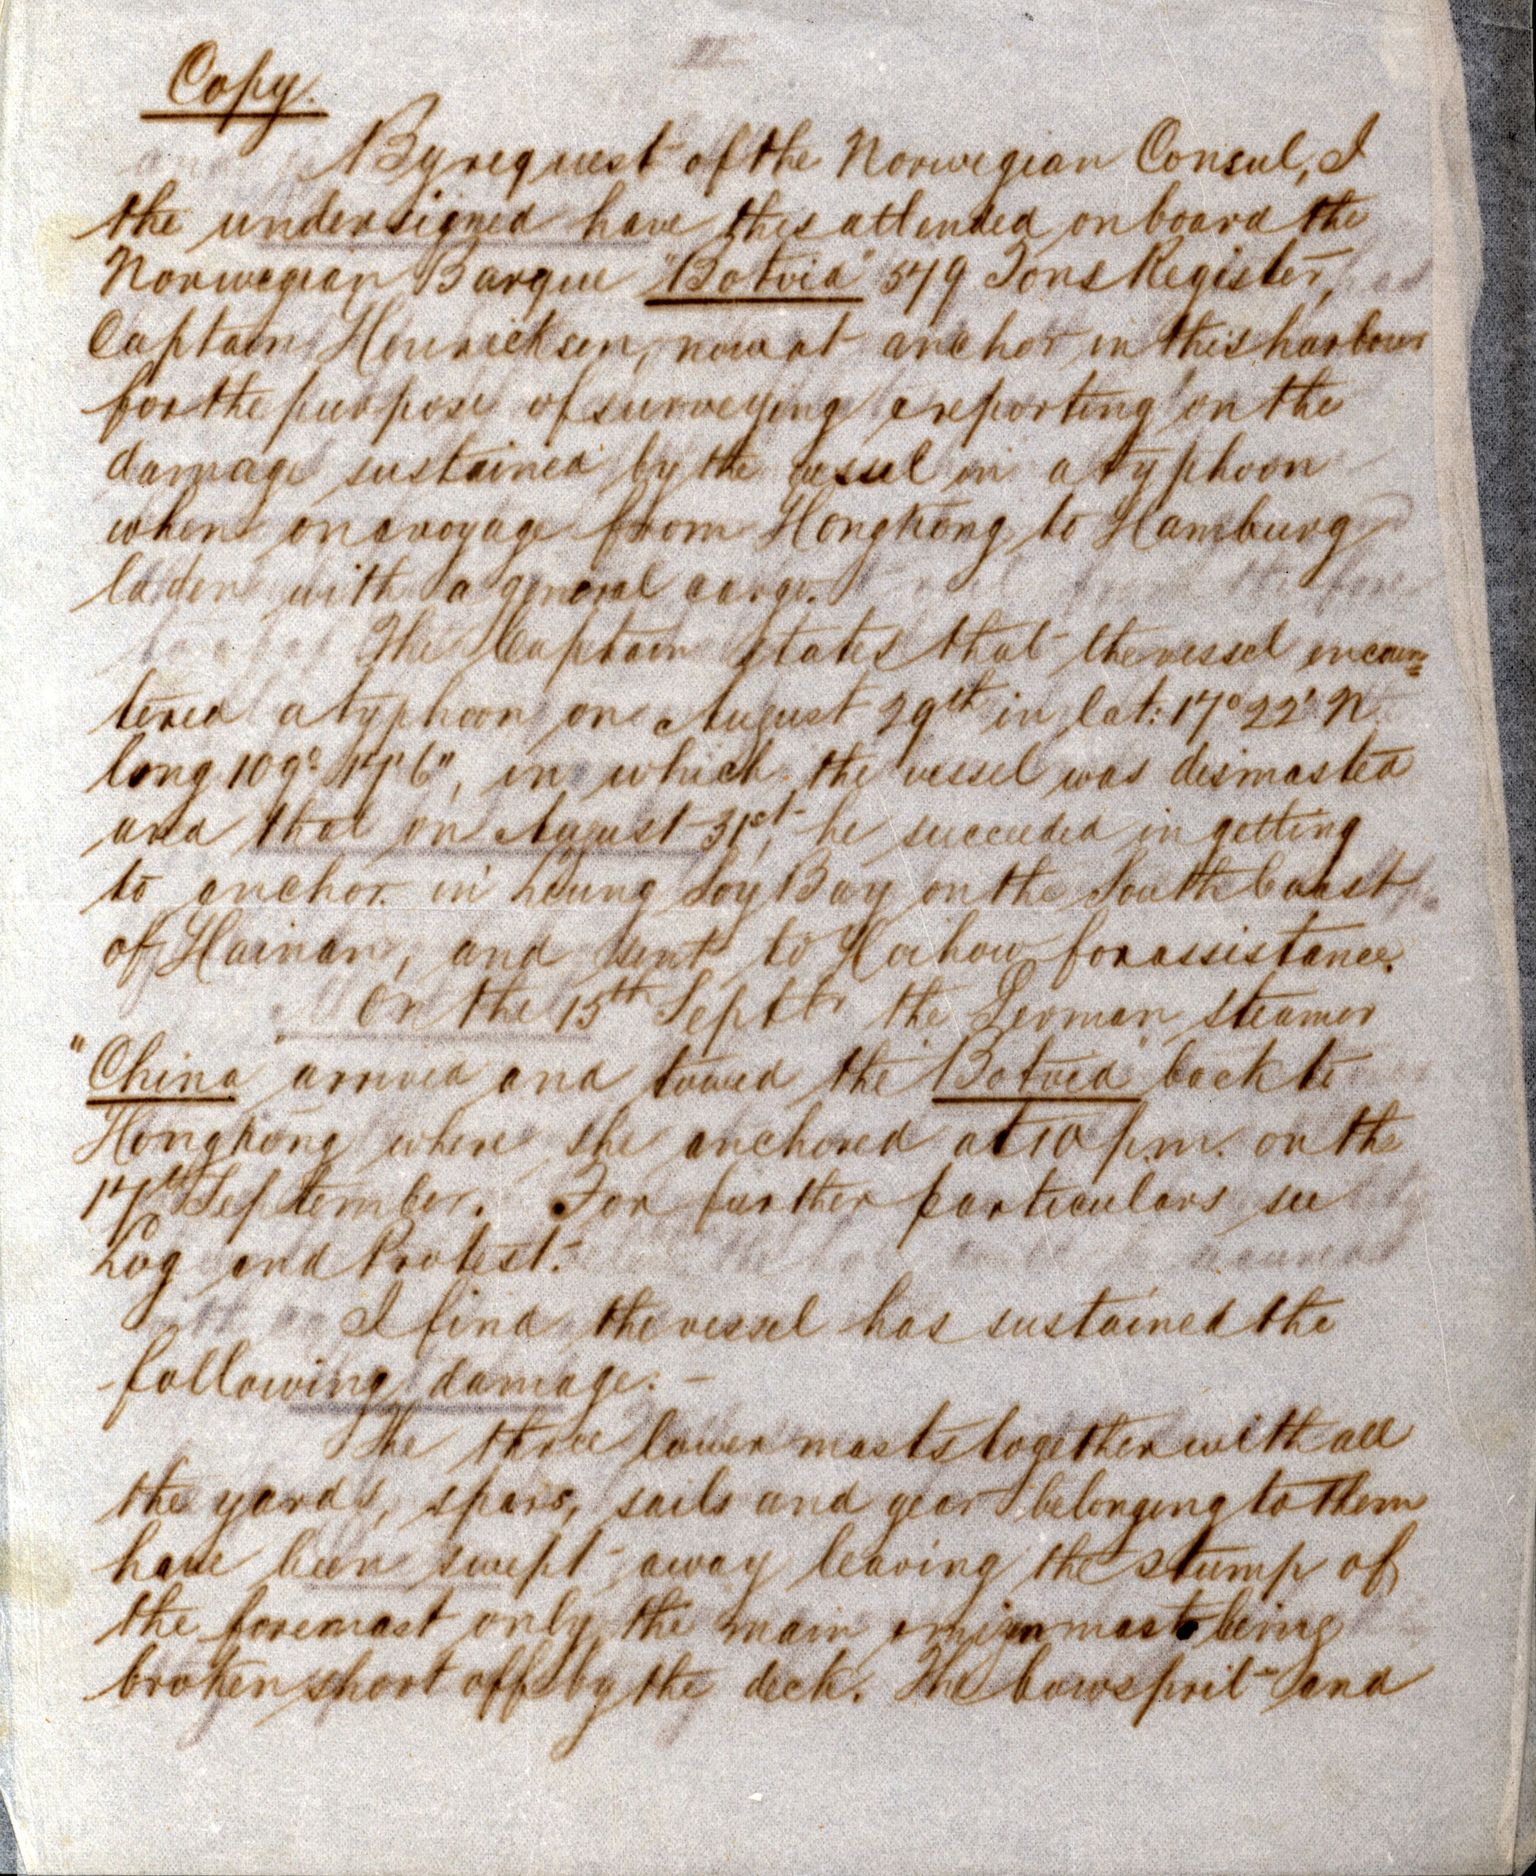 Copy.
By request of the Norwegian Consul, I
the undersigned have this attended on board the
Norwegian Barque "Botvid" 579 Tons Register,
Captain Henricksen, now at anchor in this harbour
for the purpose of surveying & reporting on the
damage sustained by the vessel in a typhoon
when on a voyage from Hongkong to Hamburg
laden with a general cargo.
The Captain states that the vessel encoun=
tered a typhoon on August 29th in lat: 17° 22' N.
long 109° 17' 6", in which the vessel was dismasted
and that on August 31st he succeeded in getting
to anchor in Leung Soy Bay on the South Coast
of Hainan, and sent to Hoihow for assistance.
On the 15th Septbr the German steamer
"China arrived and towed the "Botvid" back to
Hongkong where she anchored at 10 p.m. on the
17th September. For further particulars see
Log and Protest.
I find the vessel has sustained the
following damage. -
The three lower masts together with all
the yards, spars, sails and gear belonging to them
have been swept away leaving the stump of
the foremast only, the main & mizen masts being
broken short off by the deck. The bowsprit and